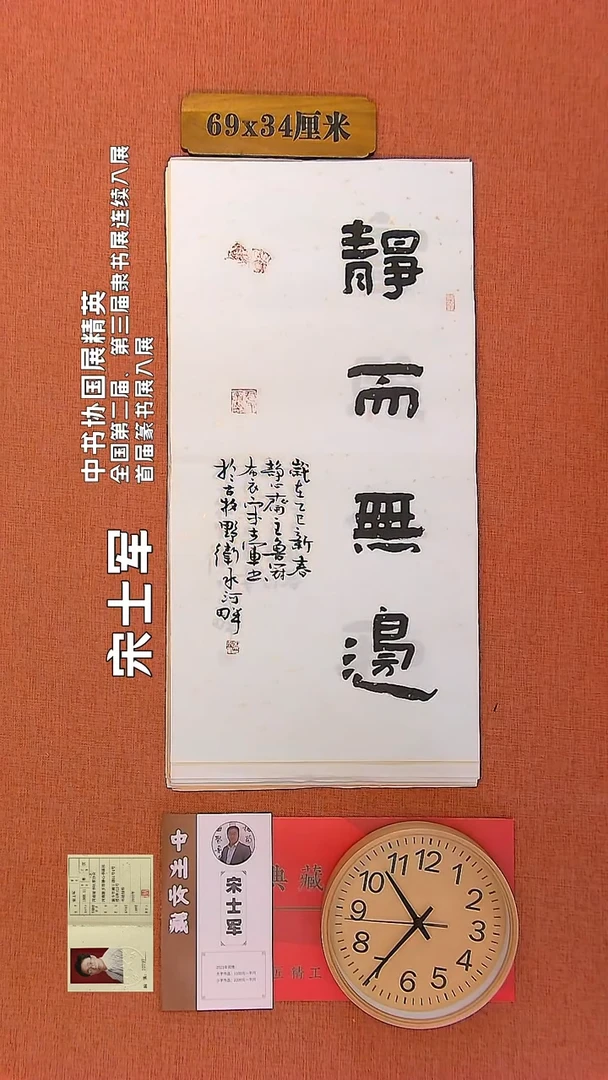 69x34厘米
靜而無邊
歲在乙巳新春
布衣宋士軍書
於古牧野衛水河畔
中书协国展精英
全国第二届、第三届隶书展连续入展
首届篆书展入展
宋士军
宋士军
典藏
12
1
2
3
4
5
6
7
8
9
10
11